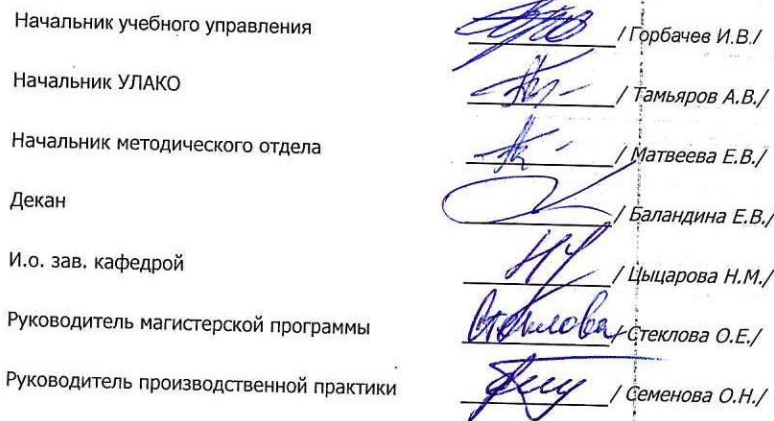 Начальник учебного управления / Горбачев И.В./
Начальник УЛАКО / Тамьяров А.В./
Начальник методического отдела / Матвеева Е.В./
Декан / Баландина Е.В./
И.о. зав. кафедрой / Цыцарова Н.М./
Руководитель магистерской программы / Стеклова О.Е./
Руководитель производственной практики / Семенова О.Н./